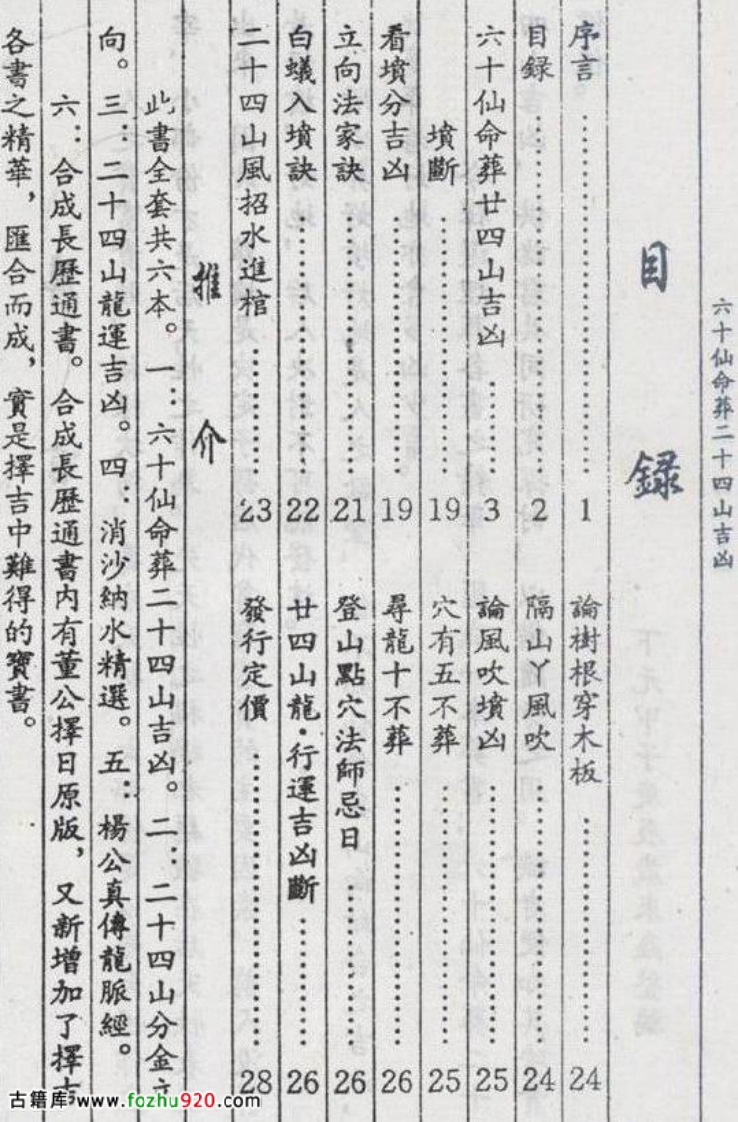 六十仙命葬二十四山吉凶
目錄
序言 1
論樹根穿木板 24
目録 2
隔山丫風吹 24
六十仙命葬廿四山吉凶 3
論風吹墳凶 25
墳斷 19
穴有五不葬 25
看墳分吉凶 19
尋龍十不葬 26
立向法家訣 21
登山點穴法師忌日 26
白蟻入墳訣 22
廿四山龍·行運吉凶斷 26
二十四山風招水進棺 23
發行定價 28
推介
此書全套共六本。一：六十仙命葬二十四山吉凶。二：二十四山分金立
向。三：二十四山龍運吉凶。四：消沙納水精選。五：楊公真傳龍脈經。
六：合成長歷通書。合成長歷通書內有董公擇日原版，又新增加了擇吉
各書之精華，匯合而成，實是擇吉中難得的寶書。
古籍库 www.fozhu920.com